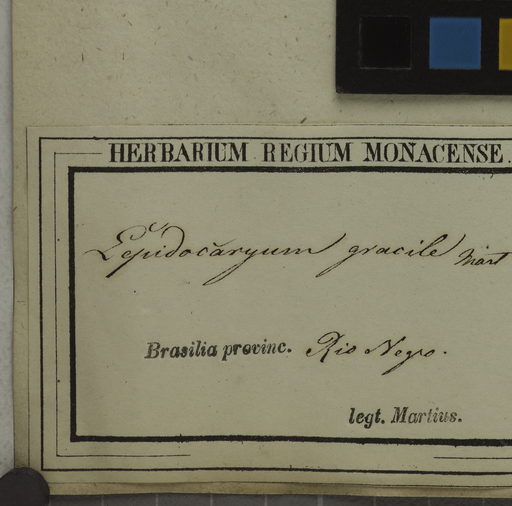 HERBARIUM REGIUM MONACENSE.
Lepidocăryum gracile Mart
Brasilia provinc. Rio Negro.
legt. Martius.